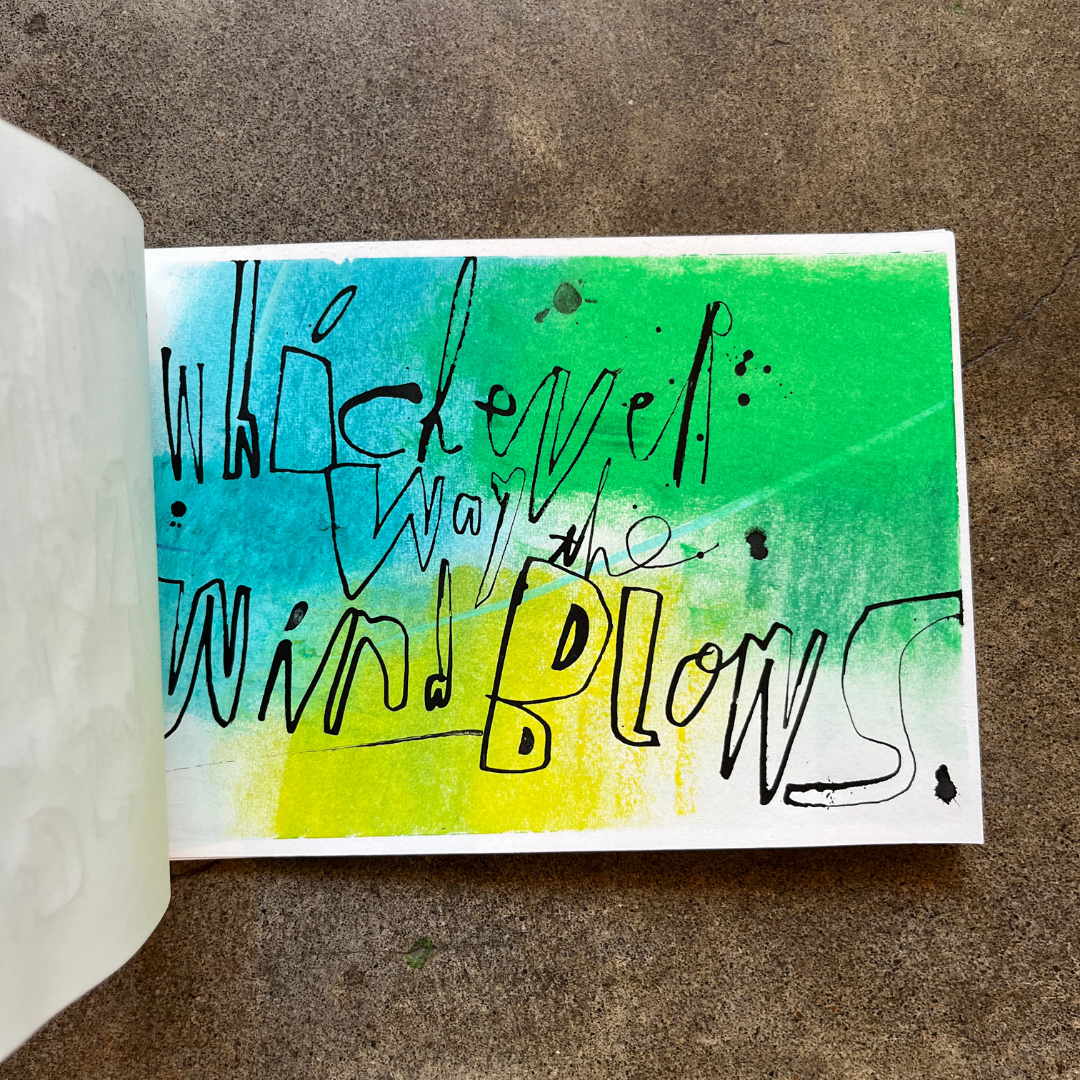 whichever
way the
wind Blows.